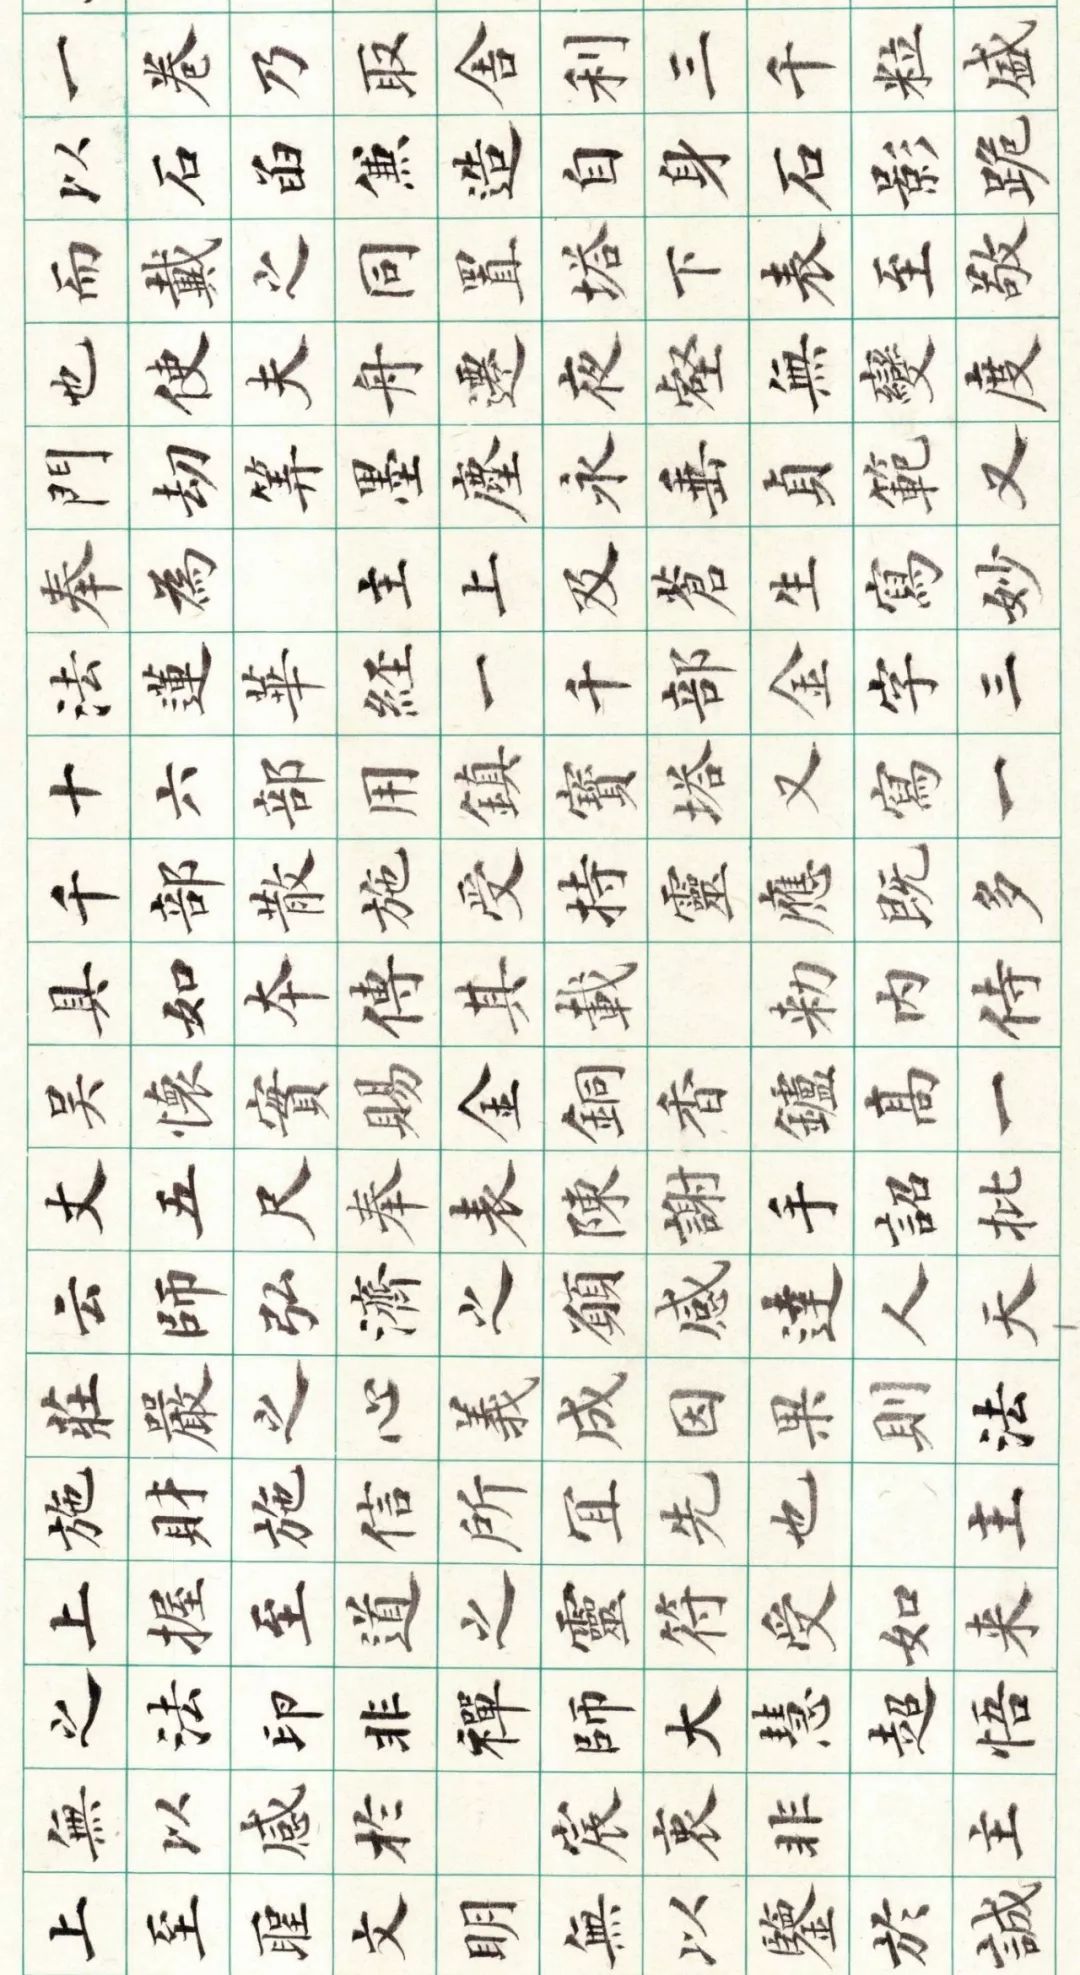 一卷乃取舍利三千粒盛
以石凾兼造自身石影跪
而戴之同置塔下表至敬
也使夫舟遷夜壑無變度
門劫筭墨塵永垂貞範又
奉為 主上及蒼生寫妙
法蓮華經一千部金字三
十六部用鎮寶塔又寫一
千部散施受持靈應既多
具如本傳其載 勑内侍
吴懷實賜金銅香鑪高一
丈五尺奉表陳謝手詔批
云師弘濟之願感達人天
莊嚴之心義成因果則法
施財施信所宜先也 主
上握至道之靈符受如来
之法印非禪師大慧超悟
無以感於 宸衷非 主
上至聖文明無以鑒於誠